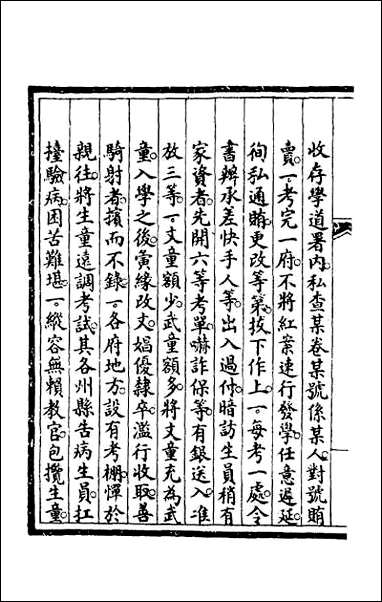 收存學道署內。私查某卷某號係某人。對號賄
賣。一、考完一府。不將紅案速行發學。任意遲延
徇私通賄。更改等第。拔下作上。一、每考一處。令
書辦承差快手人等。出入過付。暗訪生員稍有
家資者。先開六等考單。嚇詐保等。有銀送入。准
放三等。一、文童額少。武童額多。將文童充為武
童入學之後。夤緣改文。娼優隸卒。濫行收取。善
騎射者。擯而不錄。一、各府地方。設有考棚。憚於
親往。將生童遠調考試。其各州縣告病生員。扛
擡驗病。困苦難堪。一、縱容無賴教官。包攬生童。